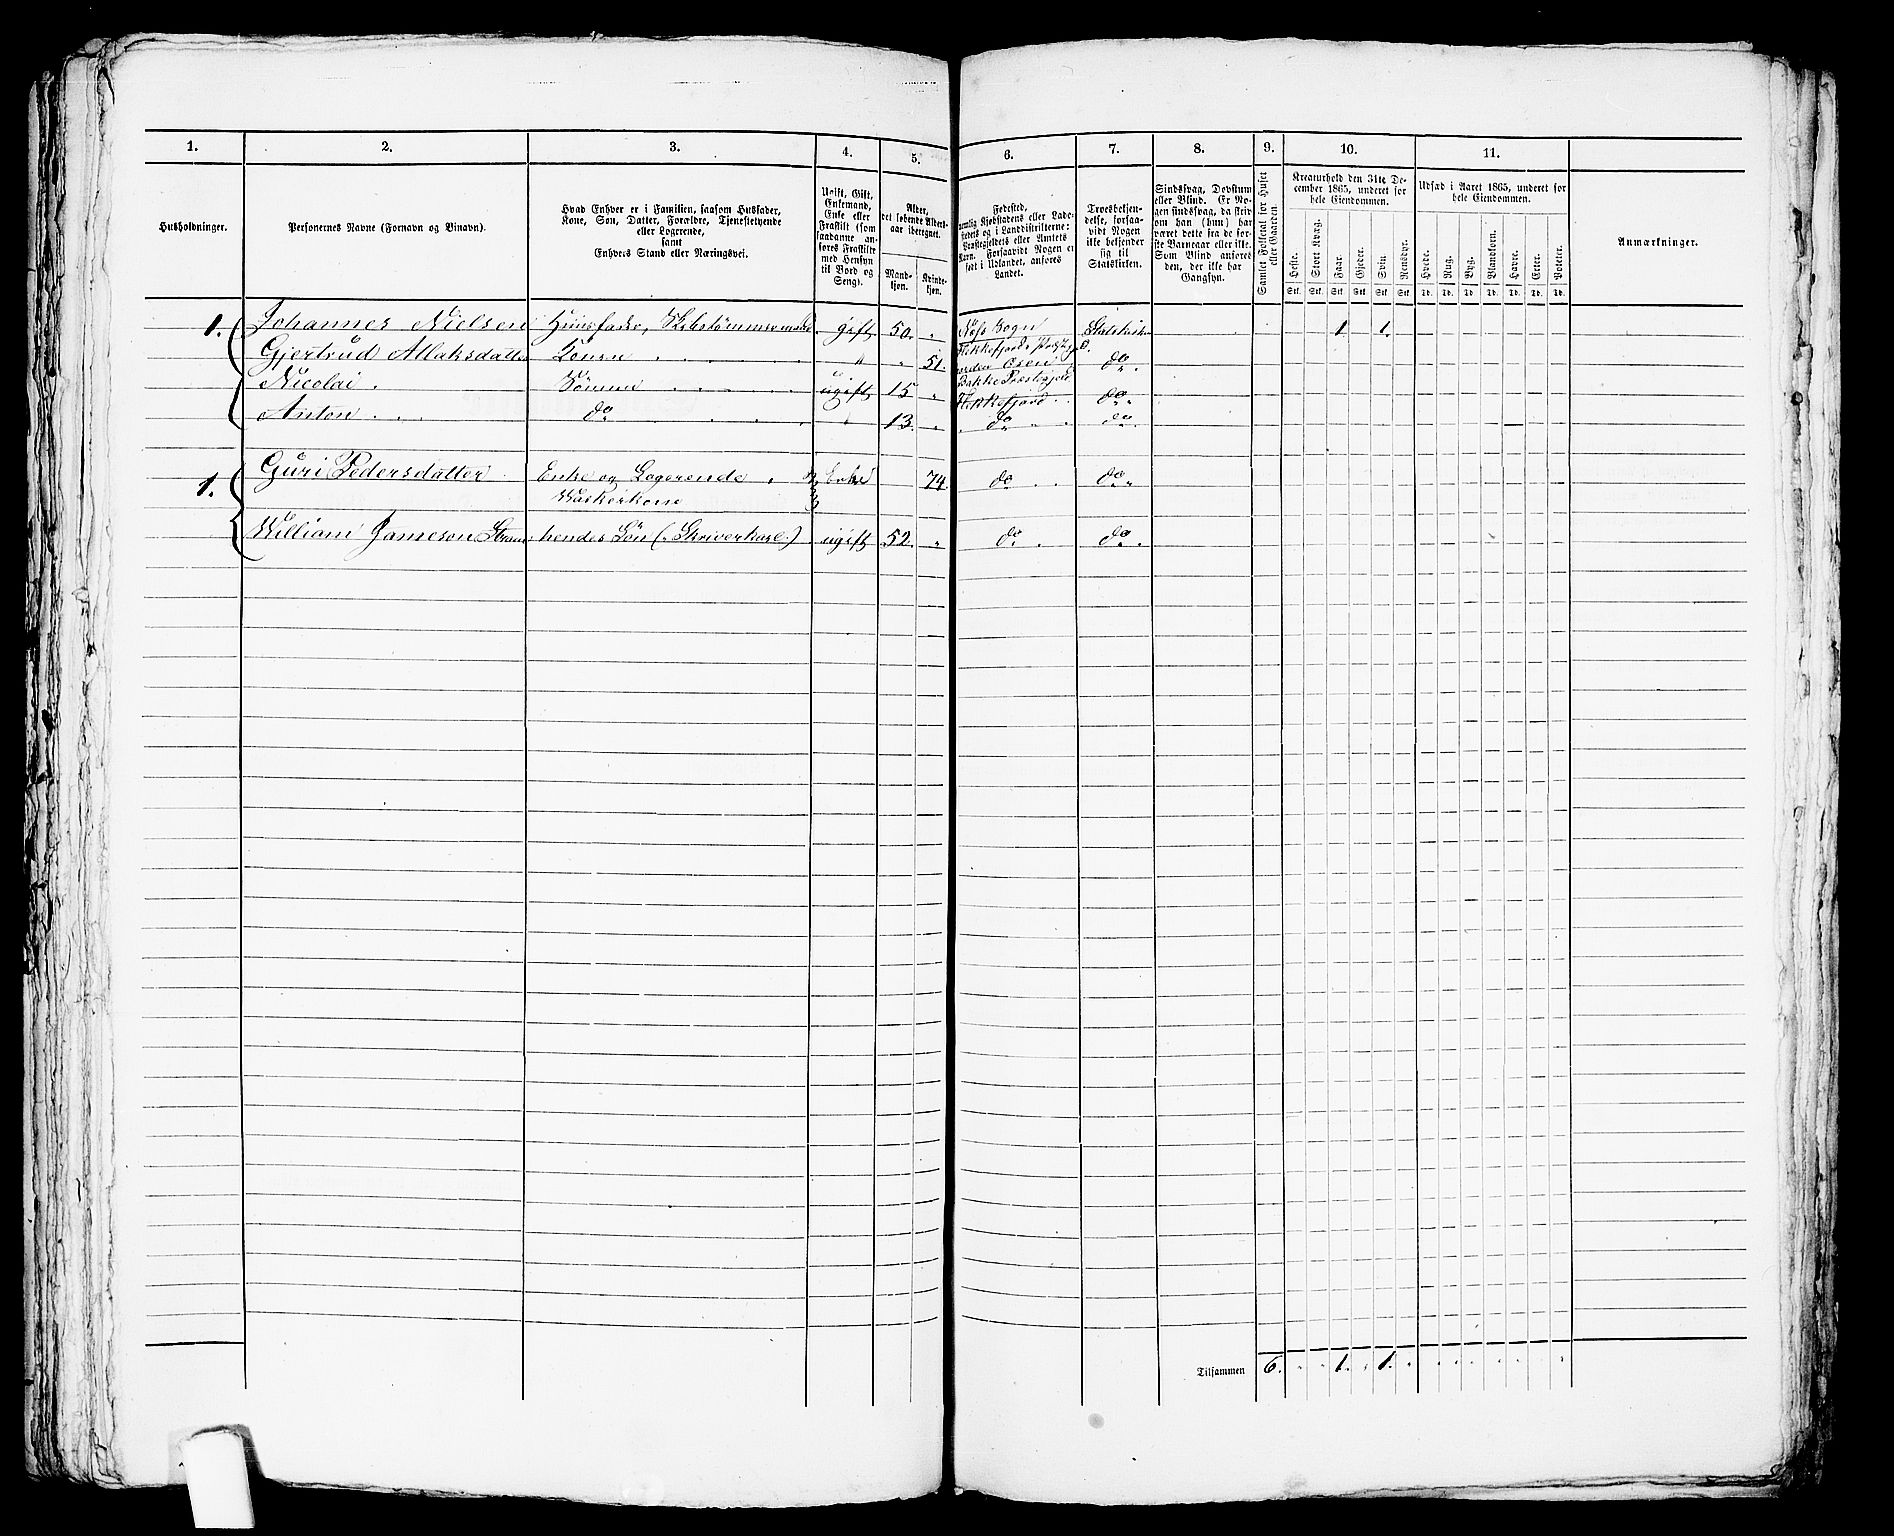 1. 2. 3. 4. 5. 6. 7. 8. 9. 10. 11.
Husholdninger.
Personernes Navne (Fornavn og Binavn).
Hvad Enhver er i Familien, saasom Husfader,
Kone, Søn, Datter, Forældre, Tjenestetyende
eller Logerende,
samt
Enhvers Stand eller Næringsvei.
Ugift, Gift,
Enkemand,
Enke eller
Fraskilt (som
saadanne an-
føres Fraskilte
med Hensyn
til Bord og
Seng).
Alder,
det løbende Alders-
aar iberegnet.
Mand-
kjøn.
Kvinde-
kjøn.
Fødested,
nemlig Kjøbstadens eller Lade-
stedets og i Landdistrikterne:
Præstegjeldets eller Amtets
Navn. Forsaavidt Nogen er
født i Udlandet, anføres
Landet.
Troesbekjen-
delse, forsaa-
vidt Nogen
ikke bekjender
sig til
Statskirken.
Sindssvag, Døvstum
eller Blind. Er No-
gen sindssvag, da skriv
om han (hun) har
været dette fra de før-
ste Barneaar eller ikke.
Som Blind anføres
den, der ikke har
Gangsyn.
Samlet Folketal for Huset
eller Gaarden
Kreaturhold den 31te De-
cember 1865, underet for
hele Eiendommen.
Heste. Stort Kvæg. Faar. Gjeder. Svin. Rensdyr.
Stk. Stk. Stk. Stk. Stk. Stk.
Udsæd i Aaret 1865, underet for
hele Eiendommen.
Hvede. Rug. Byg. Blandkorn. Havre. Erter. Poteter.
Td. Td. Td. Td. Td. Td. Td.
Anmærkninger.
1. Johannes Nielsen Huusfader, gift 50. " Sogn Statskirken 1 1.
Gjertrud Aslaksdatter Konen " " 51. Flekkefjords do.
Nicolai Sønnen ugift 15 " Bakke Præstegjeld
Flekkefjord do.
Anton do " 13. " do do.
1. Guri Pedersdatter Enke og Logerende Enke 74. do do.
Vaskerkone
William Jameson hendes Søn (Skriverkarl) ugift 52. " do. do.
Tilsammen 6. " " 1. " 1. " " " " " " " "